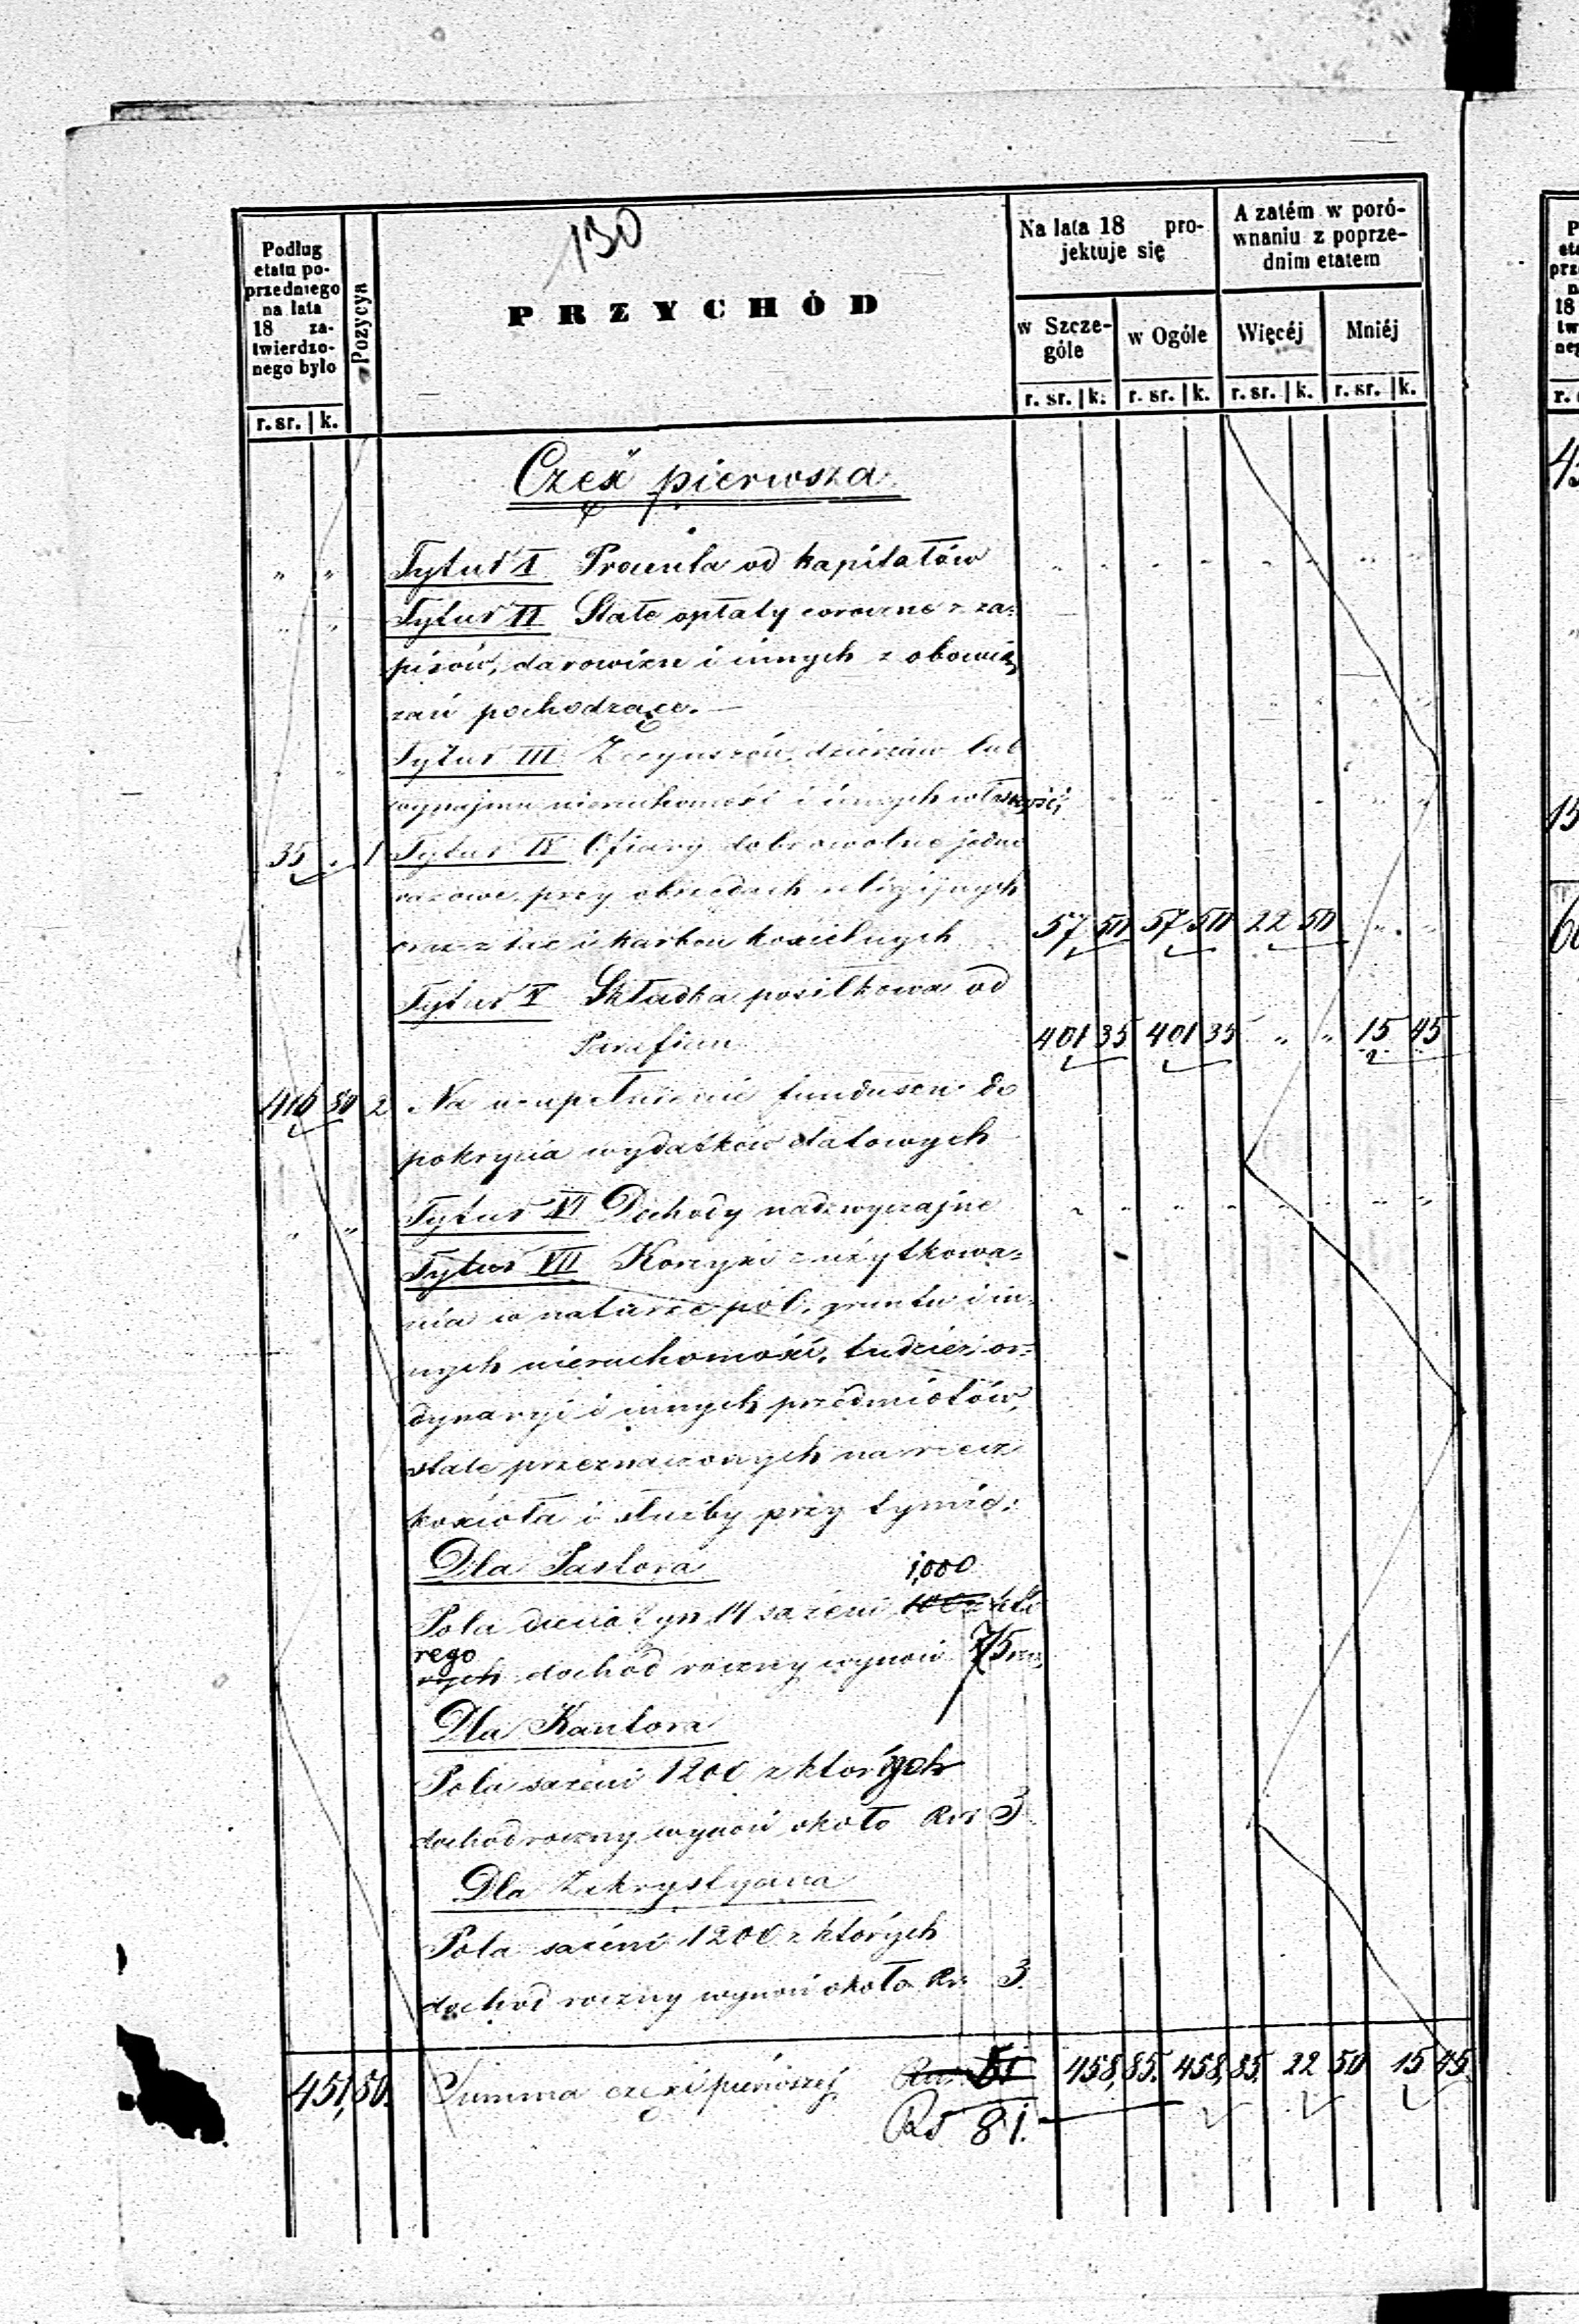 130
Podług
etatu po-
przedniego
na lata
18 za-
twierdzo-
nego było
r. sr. k.
Pozycya
PRZYCHÓD
Na lata 18 pro-
jektuje się
w Szcze-
góle
w Ogóle
r. sr. k. r. sr. k.
A zatém w poró-
wnaniu z poprze-
dnim etatem
Więcéj
Mniéj
r. sr. k. r. sr. k.
Część pierwsza
" " Tytuł I Procenta od kapitałów
" " Tytuł II Stałe opłaty coroczne z za-
pisów, darowizn i innych z obowią
zań pochodzące.
Tytuł III Z czynszów, dzierżaw lub
wynajmu nieruchomości i innych własności,
35 . 1 Tytuł IV Ofiary dobrowolne jedno
razowe przy obrzędach religijnych
oraz z tac i karbon kościelnych 57 50 57 50 22 50 " "
Tytuł V Składka posiłkowa od
Parafian 401 35 401 35 " " 15 45
416 80 2 Na uzupełnienie funduszu do
pokrycia wydatków etatowych
" " Tytuł VI Dochody nadzwyczajne
Tytuł VII Korzyści z użytkowa-
nia w naturze pól, gruntu i in-
nych nieruchomości, tudzież or-
dynaryi i innych przedmiotów,
stale przeznaczonych na rzecz
kościoła i służby przy tymże:
Dla Pastora
1,000
Pola dziesiatyn 14 sażeni z któ
rego
rych dochód roczny wynosi 75
Dla Kantora
Pola sażeni 1200 z których
dochód roczny wynosi około Rs 3
Dla Zakrystyana
Pola sażeni 1200 z których
dochód roczny wynosi około Rs 3.
451,80. Summa części pierwszej 51 458,85. 458,85. 22 50 15 45.
Rs 81.